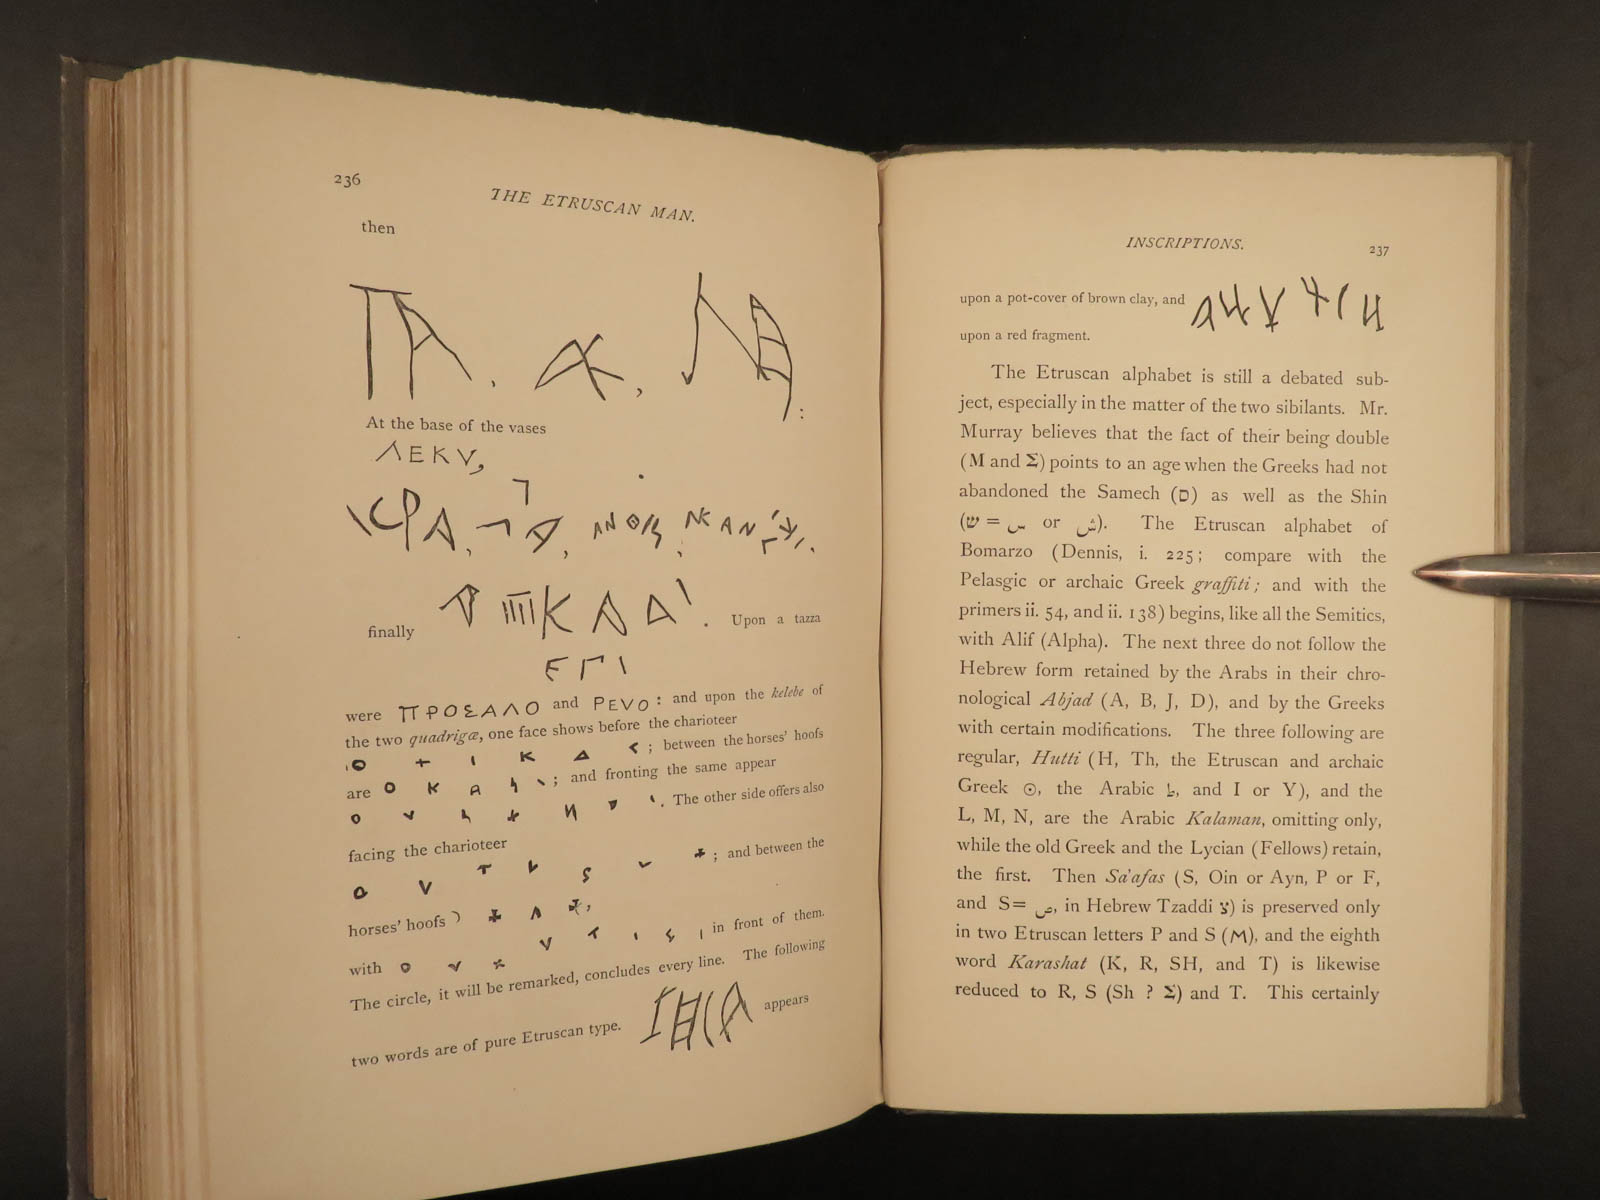 236
THE ETRUSCAN MAN.
then
At the base of the vases
ΛΕΚV,
finally
Upon a tazza
were ΠΡΟΣΑΛΟ and PEVO: and upon the kelebe of
the two quadrigæ, one face shows before the charioteer
; between the horses' hoofs
are ; and fronting the same appear
. The other side offers also
facing the charioteer
; and between the
horses' hoofs)
with in front of them.
The circle, it will be remarked, concludes every line. The following
two words are of pure Etruscan type. appears
INSCRIPTIONS.
237
upon a pot-cover of brown clay, and
upon a red fragment.
The Etruscan alphabet is still a debated sub-
ject, especially in the matter of the two sibilants. Mr.
Murray believes that the fact of their being double
(M and Σ) points to an age when the Greeks had not
abandoned the Samech (ם) as well as the Shin
(ש = س or ش). The Etruscan alphabet of
Bomarzo (Dennis, i. 225; compare with the
Pelasgic or archaic Greek graffiti; and with the
primers ii. 54, and ii. 138) begins, like all the Semitics,
with Alif (Alpha). The next three do not follow the
Hebrew form retained by the Arabs in their chro-
nological Abjad (A, B, J, D), and by the Greeks
with certain modifications. The three following are
regular, Hutti (H, Th, the Etruscan and archaic
Greek ⊙, the Arabic ط, and I or Y), and the
L, M, N, are the Arabic Kalaman, omitting only,
while the old Greek and the Lycian (Fellows) retain,
the first. Then Sa'afas (S, Oin or Ayn, P or F,
and S= ص, in Hebrew Tzaddi צ) is preserved only
in two Etruscan letters P and S (M), and the eighth
word Karashat (K, R, SH, and T) is likewise
reduced to R, S (Sh ? Σ) and T. This certainly